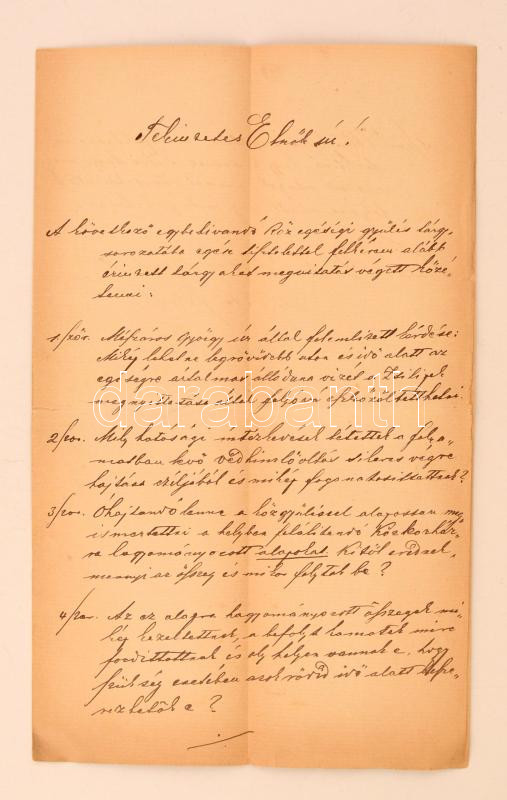 Tekintetes Elnök úr!
A következő egybehivandó Közegésségi gyülés tárgy-
sorozatába egész tisztelettel felkérem alább
érintett tárgyakat megvitatás végett kitű-
1/ször. Mészáros György úr által felemlitett kérdése:
Mikép lehetne legrövidebb uton és idő alatt az
egésségre ártalmas állóduna vizet a Zsilipek
megnyittatása által folyóvá
2/szor. Mely hatósági intézkedések tétettek a folya-
matban levő védhimlőoltás sikeres végre
hajtása czéljából és mikép foganatosittattak?
3/szor. Óhajtandó lenne a közgyüléssel alapossan meg
ismertetni a helyben felállitandó Közkorház-
ra hagyományozott alapokat. Kitöl erednek,
mennyi az összeg és mikor folytak be?
4/szer. Az ez alapra hagyományozott összegek mi-
kép kezeltettnek, a befolyt kamatok mire
fordittattnak és oly helyen vannak e, hogy
szükség esetében azok rövid idő alatt
e?
darabanth